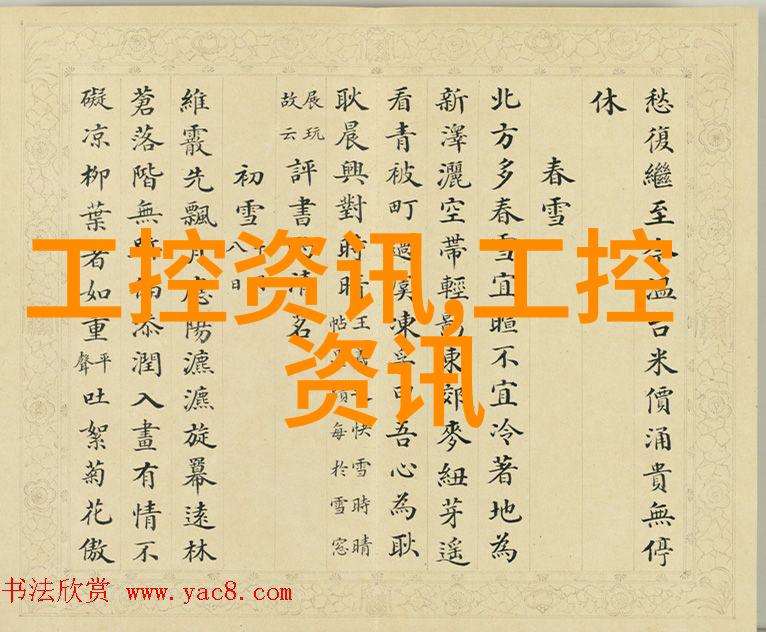 愁復繼至溫台米價涌貴無停
休
春雪
北方多春雪宜暄不宜冷著地為
新澤灑空帶輕影東郊麥紐芽遙
看青被町過虞凍孚甲吾心為耿
耿晨興對時晴
王快雪時晴
帖每於雪窓
展玩
故云
評書清名
初雪
八日
維霰先飄應陽瀌瀌旋冪遠林
蒼落階無添潤入畫有情不
礙凉柳葉者如重平聲吐絮菊花傲
工控资讯,工控
资讯
书法欣赏 www.yac8.com